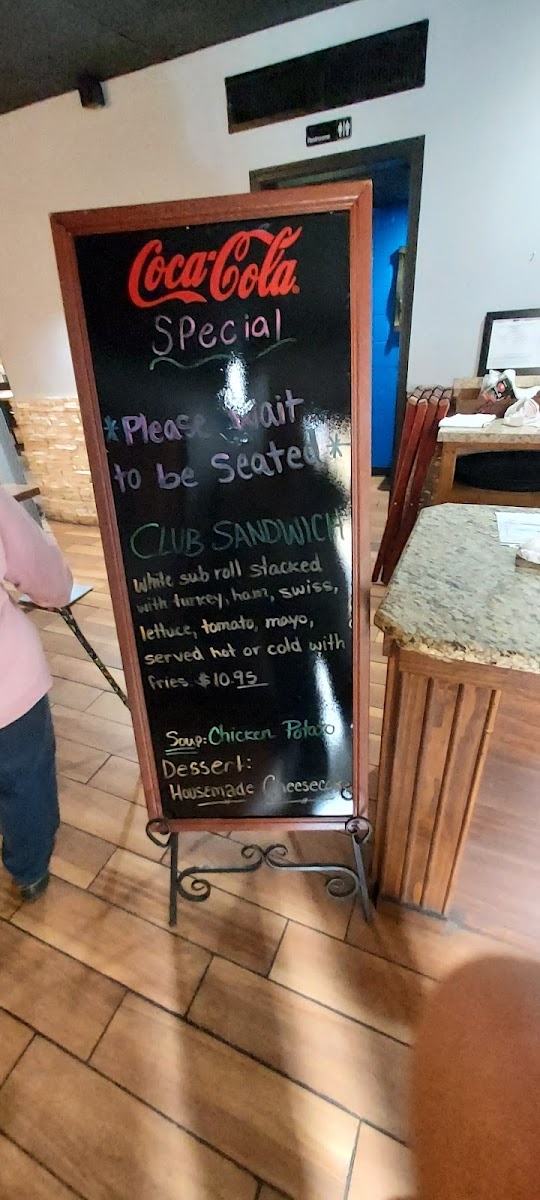 Restrooms
Coca-Cola
Special
*Please wait
to be seated*
CLUB SANDWICH
White sub roll stacked
with turkey, ham, swiss,
lettuce, tomato, mayo,
served hot or cold with
fries $10.95
Soup: Chicken Potato
Dessert:
Housemade Cheesecake